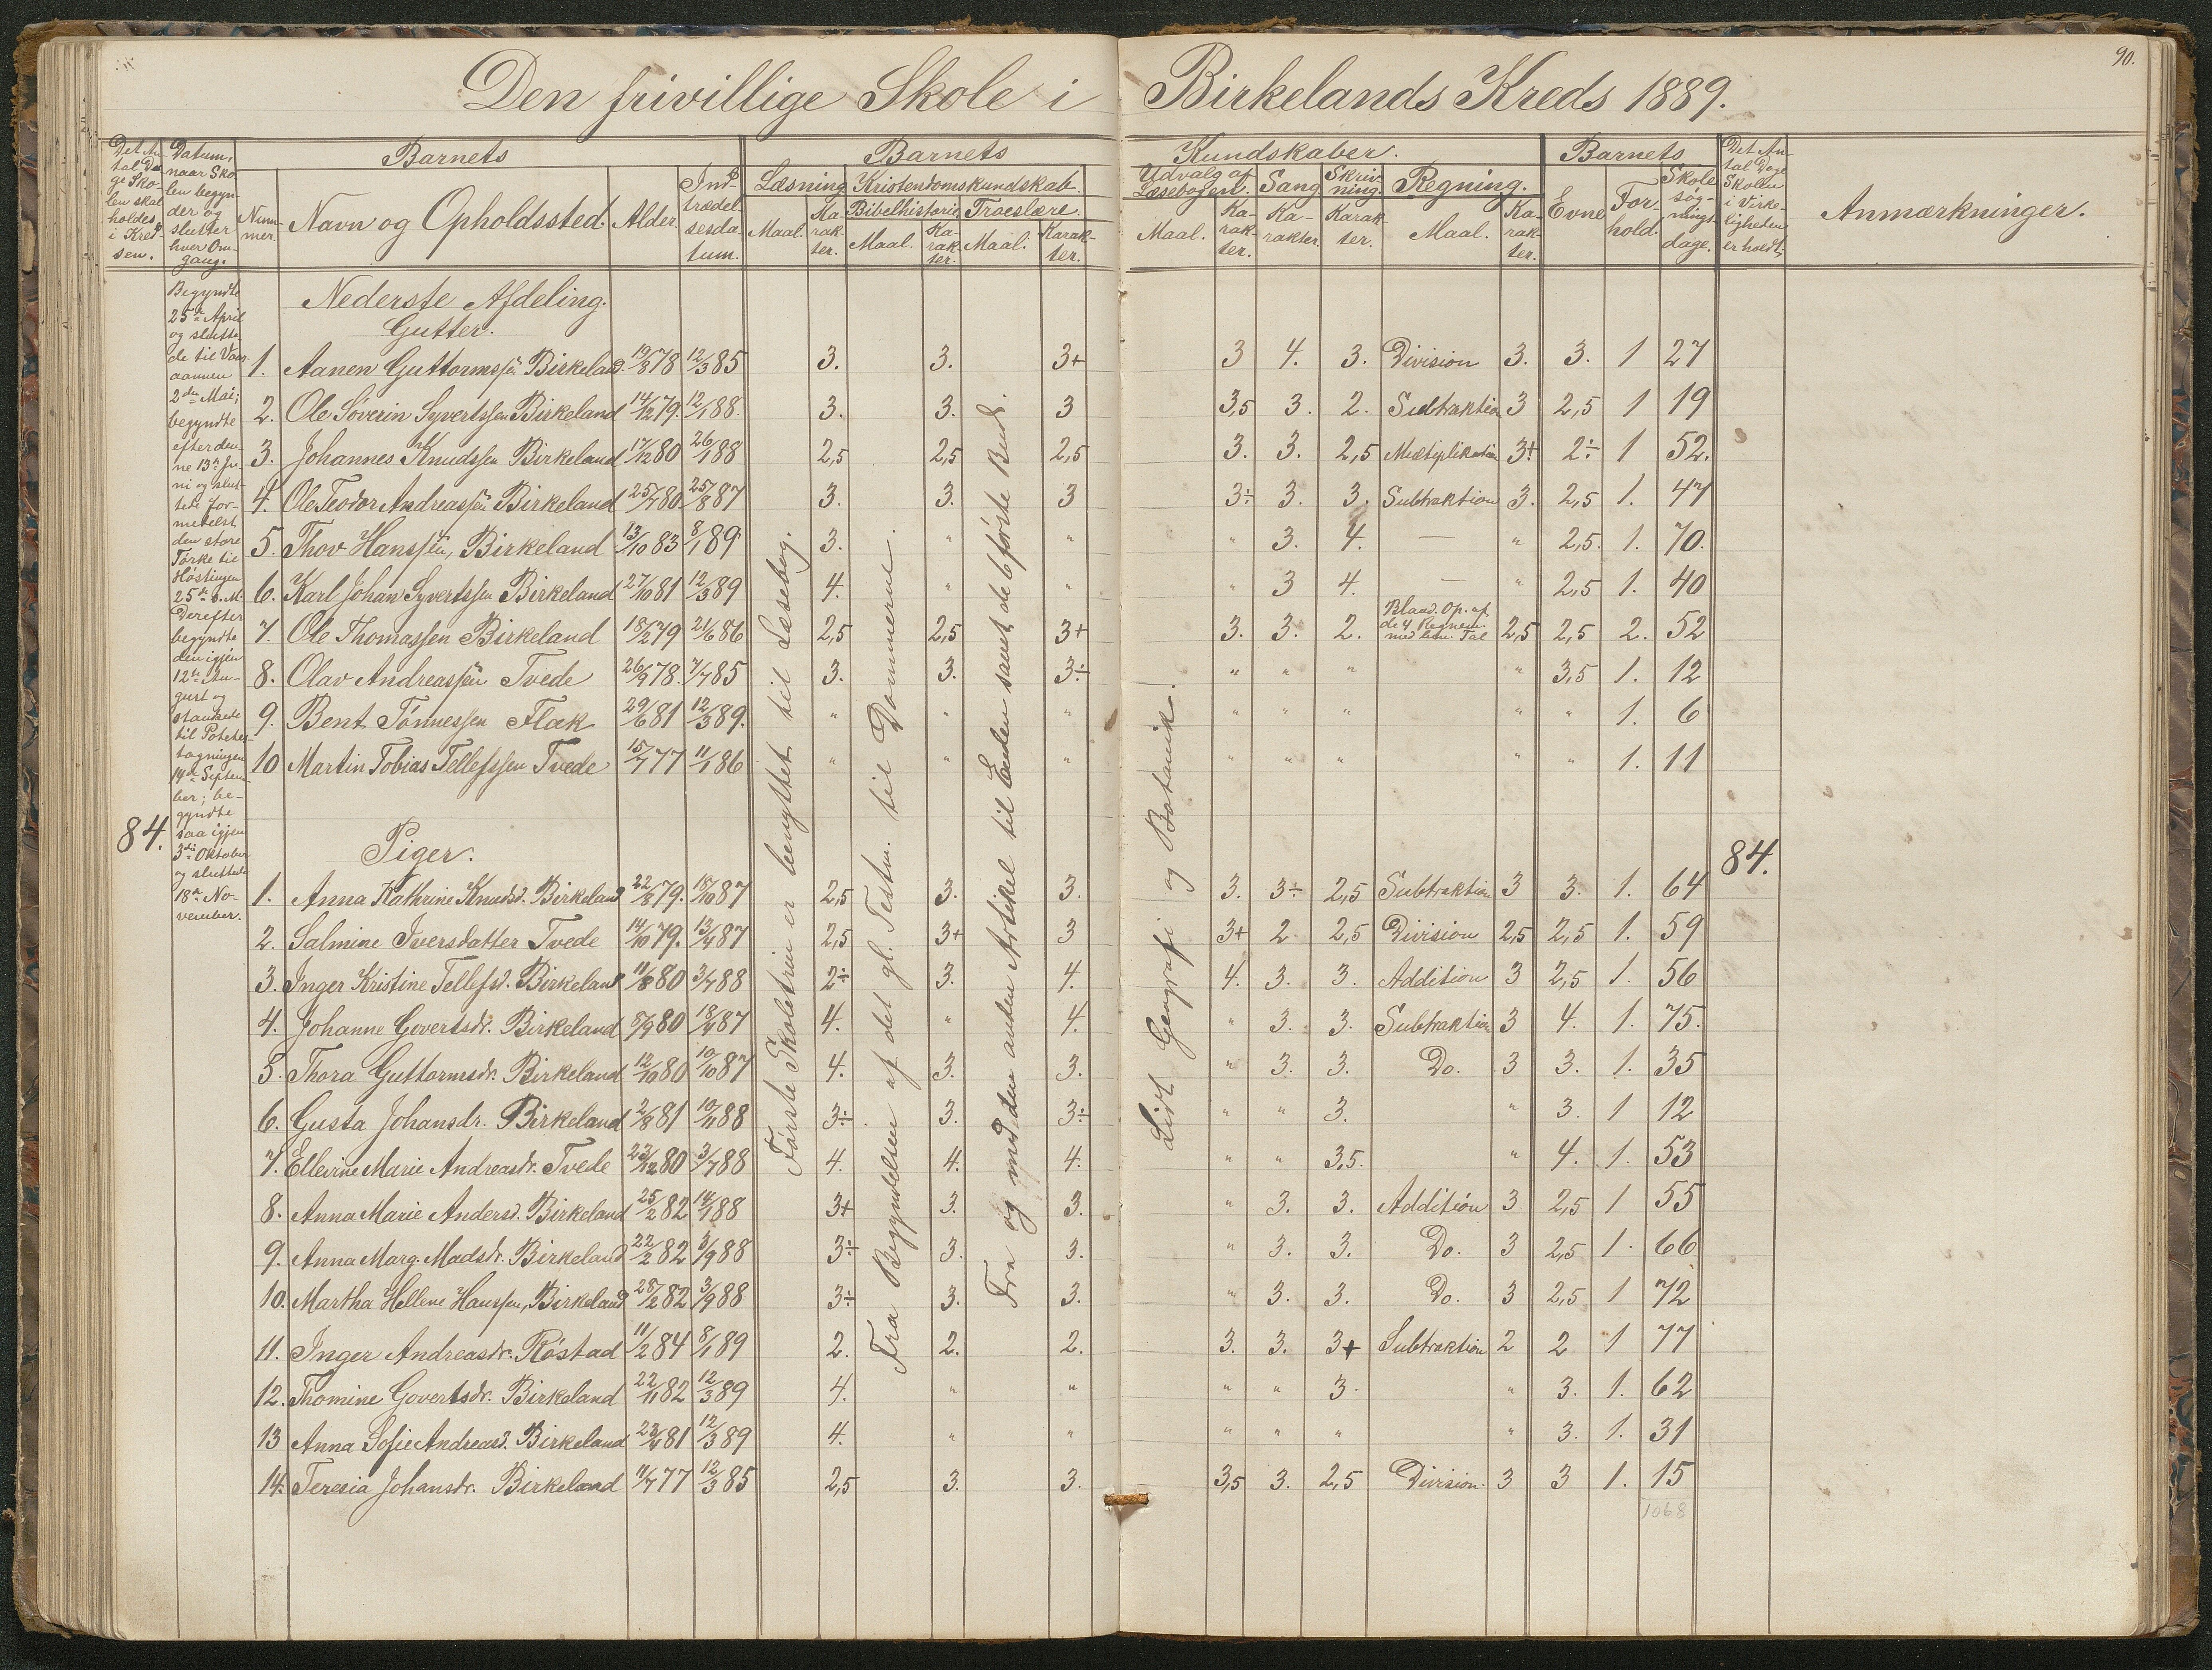 90.
Den frivillige Skole i Birkelands Kreds 1889.
Det An-
tal Da-
ge Sko-
len skal
holdes
i Kred-
sen.
Datum,
naar Sko-
len begyn-
der og
slutter
hver Om-
gang.
Barnets
Num-
mer.
Navn og Opholdssted.
Alder.
Ind-
trædel-
sesda-
tum.
Barnets
Læsning
Maal.
Ka-
rak-
ter.
Kristendomskundskab.
Bibelhistorie
Maal.
Ka-
rak-
ter.
Troeslære.
Maal.
Karak-
ter.
Kundskaber.
Udvalg af
Læsebogen.
Maal.
Ka-
rak-
ter.
Sang
Ka-
rakter.
Skriv-
ning.
Karak-
ter.
Regning.
Maal.
Ka-
rak-
ter.
Barnets
Evne
For-
hold.
Skole
søg-
nings-
dage.
Det An-
tal Dage
Skolen
i Virke-
ligheden
er holdt.
Anmærkninger.
84.
Begyndte
25de April
og slutte-
de til Vaar-
aannen
2den Mai;
begyndte
efter den-
ne 13de Ju-
ni og slut-
tede for-
medelst
den store
Tørke til
Høstingen
25de s. M.
Derefter
begyndte
den igjen
12te Au-
gust og
standsede
til Potetes-
tagningen
14de Septem-
ber; be-
gyndte
saa igjen
3die Oktober
og sluttede
18de No-
vember.
Nederste Afdeling.
Gutter.
1. Aanen Guttormssen Birkeland. 19/8 78 12/3 85 3. 3. 3+ 3 4. 3. Division 3. 3. 1 27
2. Ole Søverin Syvertssen Birkeland 14/12 79. 12/1 88. 3. 3. 3 3,5 3. 2. Subtraktion 3 2,5 1 19
3. Johannes Knudssen Birkeland 17/12 80 26/1 88 2,5 2,5 2,5 3. 3. 2,5 Multiplikation 3+ 2÷ 1 52.
4. Ole Teodor Andreassen Birkeland 25/7 80 25/8 87 3. 3. 3 3÷ 3. 3. Subtraktion 3. 2,5 1. 47
5. Thov Hanssen, Birkeland 13/10 83 8/1 89 3. " " " 3. 4. — " 2,5. 1. 70.
6. Karl Johan Syvertssen Birkeland 27/10 81 12/3 89 4. " " " 3 4. — " 2,5 1. 40
7. Ole Thomassen Birkeland 18/2 79 21/6 86 2,5 2,5 3+ 3. 3. 2. Bland. Op. af
de 4 Regnem.
med ben. Tal 2,5 2,5 2. 52
8. Olav Andreassen Tvede 26/9 78. 7/7 85 3. 3. 3÷ " " " " 3,5 1. 12
9. Bent Tønnessen Flæk 29/6 81 12/3 89. " " " " " " " " 1. 6
10 Martin Tobias Tellefssen Tvede 15/7 77 11/1 86 " " " " " " " " 1. 11
Piger.
84.
1. Anna Kathrine Knudsd. Birkeland 22/8 79. 15/10 87 2,5 3. 3. 3. 3÷ 2,5 Subtraktion 3 3. 1. 64
2. Salmine Iversdatter Tvede 14/10 79. 13/4 87 2,5 3+ 3 3+ 2 2,5 Division 2,5 2,5 1. 59
3. Inger Kristine Tellefsd. Birkeland 11/8 80 3/7 88 2÷ 3. 4. 4. 3. 3. Addition 3 2,5 1. 56
4. Johanne Govertsdr. Birkeland 5/9 80 18/4 87 4. " 4. " 3. 3. Subtraktion 3 4. 1. 75.
5. Thora Guttormsdr. Birkeland 12/10 80 10/10 87 4. 3. 3. " 3. 3. Do. 3 3. 1. 35
6. Gusta Johansdr. Birkeland 2/8 81 10/11 88 3÷ 3. 3÷ " " 3. " 3. 1 12
7. Ellevine Marie Andreasdr. Tvede 23/12 80 3/7 88 4. 4. 4. " " 3,5. " 4. 1. 53
8. Anna Marie Andersd. Birkeland 25/2 82 14/1 88 3+ 3. 3. " 3. 3. Addition 3 2,5 1 55
9. Anna Marg. Madsdr. Birkeland 22/2 82 3/9 88 3÷ 3. 3. " 3. 3. Do. 3 2,5 1. 66
10. Martha Hellene Hanssen, Birkeland 28/2 82 3/9 88 3÷ 3. 3. " 3. 3. Do. 3 2,5 1 72
11. Inger Andreasdr. Røstad 11/2 84 8/1 89 2. 2. 2. 3. 3. 3+ Subtraktion 2 2 1 77
12. Thomine Govertsdr. Birkeland 22/11 82 12/3 89 4. " " " " 3. " 3. 1. 62
13 Anna Sofie Andreasd. Birkeland 23/4 81 12/3 89 4. " " " " " " 3. 1. 31
14. Teresia Johansdr. Birkeland 11/7 77 12/3 85 2,5 3. 3. 3,5 3. 2,5 Division. 3 3 1. 15
1068
Første Skoletrin er benyttet til Læsebog.
Fra Begyndelsen af det gl. Testm. til Dommerne.
Fra og med den anden Artikel til Enden samt de 6 første Bud.
Lidt Geografi og Botanik.